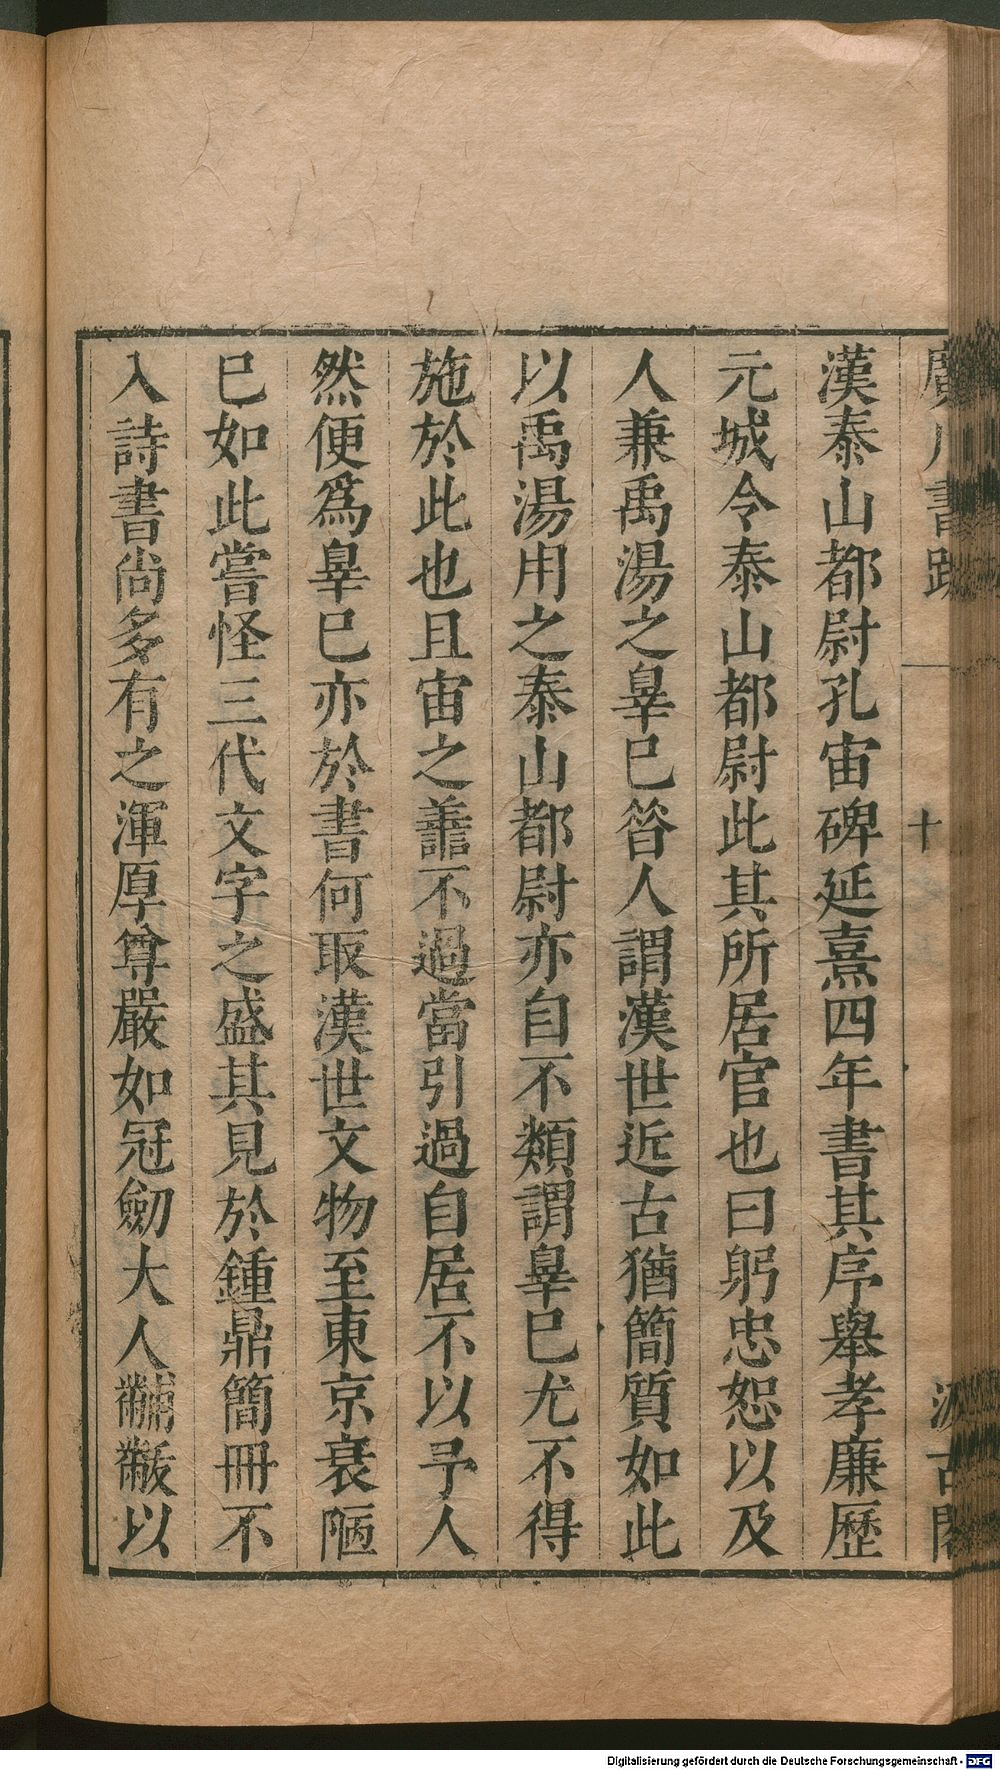 廣川書跋
十
汲古閣
漢泰山都尉孔宙碑延熹四年書其序舉孝廉歷
元城令泰山都尉此其所居官也曰躬忠恕以及
人兼禹湯之辠巳昝人謂漢世近古猶簡質如此
以禹湯用之泰山都尉亦自不類謂辠巳尤不得
施於此也且宙之譱不過當引過自居不以予人
然便爲辠巳亦於書何取漢世文物至東京衰陋
巳如此嘗怪三代文字之盛其見於鍾鼎簡冊不
入詩書尚多有之渾厚尊嚴如冠劒大人黼黻以
Digitalisierung gefördert durch die Deutsche Forschungsgemeinschaft - DFG